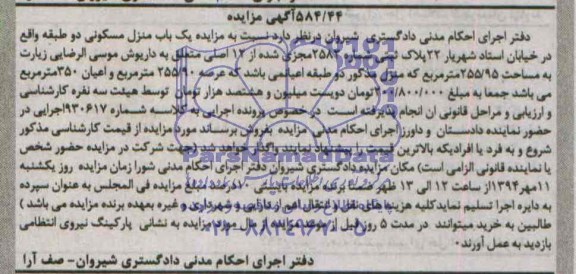 ۵۸۴/۴۴آگهی مزایده
دفتر اجرای احکام مدنی دادگستری شیروان درنظر دارد نسبت به مزایده یک باب منزل مسکونی دو طبقه واقع
در خیابان استاد شهریار ۲۲پلاک ثبتی مجزی شده از ۱۲ اصلی متعلق به داریوش موسی الرضایی زیارت
به مساحت ۲۵۵/۹۵مترمربع که منزل مذکور دو طبقه اعیانی باشد که عرصه ۲۵۵/۹۰ مترمربع و اعیان ۳۵۰مترمربع
می باشد جمعا به مبلغ ۲۰۰/۸۰۰/۰۰۰تومان دویست میلیون و هشتصد هزار تومان توسط هیئت سه نفره کارشناسی
و ارزیابی و مراحل قانونی ان انجام پذیرفته است در خصوص پرونده اجرایی به کلاسه شماره ۹۳۰۶۱۷اجرایی در
حضور نماینده دادستان و داورز اجرای احکام مدنی مزایده بفروش برساند مورد مزایده از قیمت کارشناسی مذکور
شروع و به فرد یا افرادیکه بالاترین قیمت را پیشنهاد نمایند واگذار خواهد شد (جهت شرکت در مزایده حضور شخص
یا نماینده قانونی الزامی است) مکان مزایده دادگستری شیروان دفتر اجرای احکام مدنی شورا زمان مزایده روز یکشنبه
۱۱مهر۱۳۹۴از ساعت ۱۲ الی ۱۳ ظهر برنده مزایده ۱۰ درصد مبلغ مزایده فی المجلس به عنوان سپرده
به دایره اجرا تسلیم نماید کلیه هزینه های نقل و انتقال اعم از دارایی و شهرداری و غیره بعهده برنده مزایده می باشد )
طالبین به خرید میتوانند در مدت ۵ روز قبل از مزایده از مال مورد مزایده به نشانی پارکینگ نیروی انتظامی
بازدید به عمل آورند.
دفتر اجرای احکام مدنی دادگستری شیروان- صف آرا
ParsNamadData